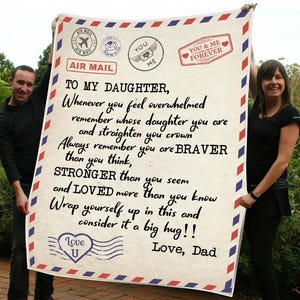 YOU & ME
YOU & ME
FOREVER
AIR MAIL
TO MY DAUGHTER,
Whenever you feel overwhelmed
remember whose daughter you are
and straighten you crown
Always remember you are BRAVER
than you think,
STRONGER than you seem
and LOVED more than you know
Wrap yourself up in this and
consider it a big hug!!
Love, Dad
Love
U